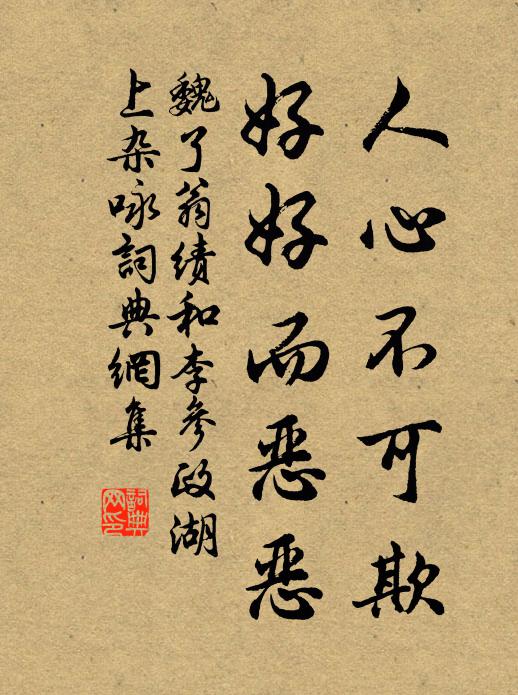 人心不可欺
好好而恶恶
魏了翁績和李參政湖
上杂咏詞典網集
詞典网印